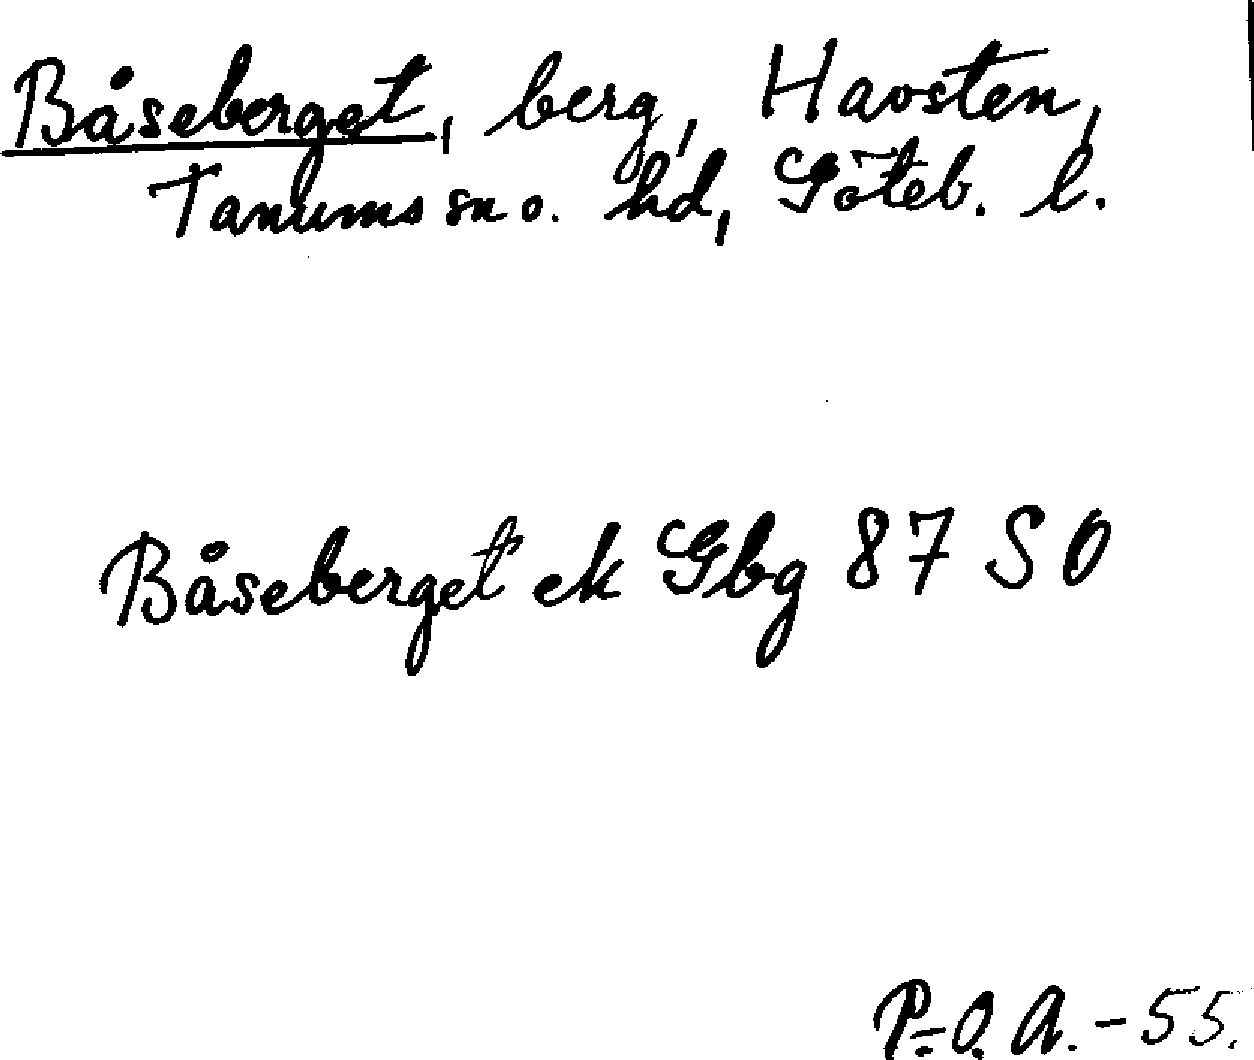 Båseberget, berg, Havsten,
Tanums sn o. hd, Göteb. l.
Båseberget ek Gbg 87 SO
P.O.A. -55.